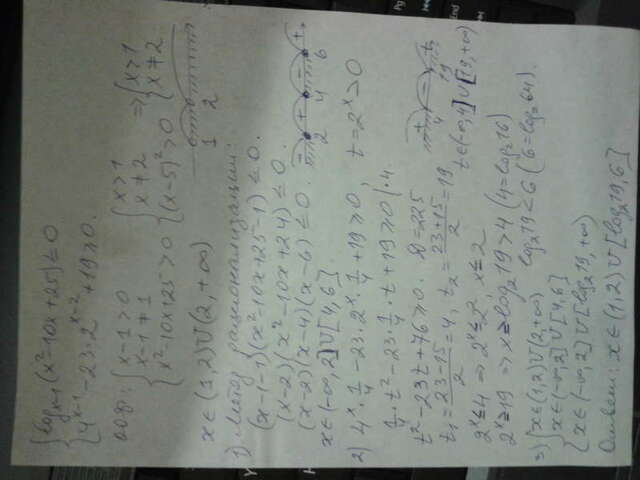 { log_{x-1}(x²-10x+25) ≤ 0
{ 4^{x-1} - 23·2^{x-2} + 19 ≥ 0.
одз: { x-1>0 { x>1
{ x-1≠1 { x≠2 ⇒ { x>1
{ x²-10x+25>0 { (x-5)²>0 { x≠2
x∈(1,2)∪(2,+∞) 1 2
1) Метод рационализации:
(x-1-1)(x²-10x+25-1) ≤ 0.
(x-2)(x²-10x+24) ≤ 0.
(x-2)(x-4)(x-6) ≤ 0. - + - + 2 4 6
x∈(-∞,2]∪[4,6].
2) 4^x·1/4 - 23·2^x·1/4 + 19 ≥ 0, t=2^x>0
1/4·t² - 23·1/4·t + 19 ≥ 0 |·4.
t² - 23t + 76 ≥ 0. D=225 + - + 4 19
t₁ = (23-15)/2 = 4, t₂ = (23+15)/2 = 19. t∈(-∞,4]∪[19,+∞)
2^x ≤ 4 ⇒ 2^x ≤ 2², x ≤ 2
2^x ≥ 19 ⇒ x ≥ log₂19 > 4 (4=log₂16)
log₂19 < 6 (6=log₂64).
3) { x∈(1,2)∪(2,+∞)
{ x∈(-∞,2]∪[4,6]
{ x∈(-∞,2]∪[log₂19,+∞)
Ответ: x∈(1,2)∪[log₂19,6]